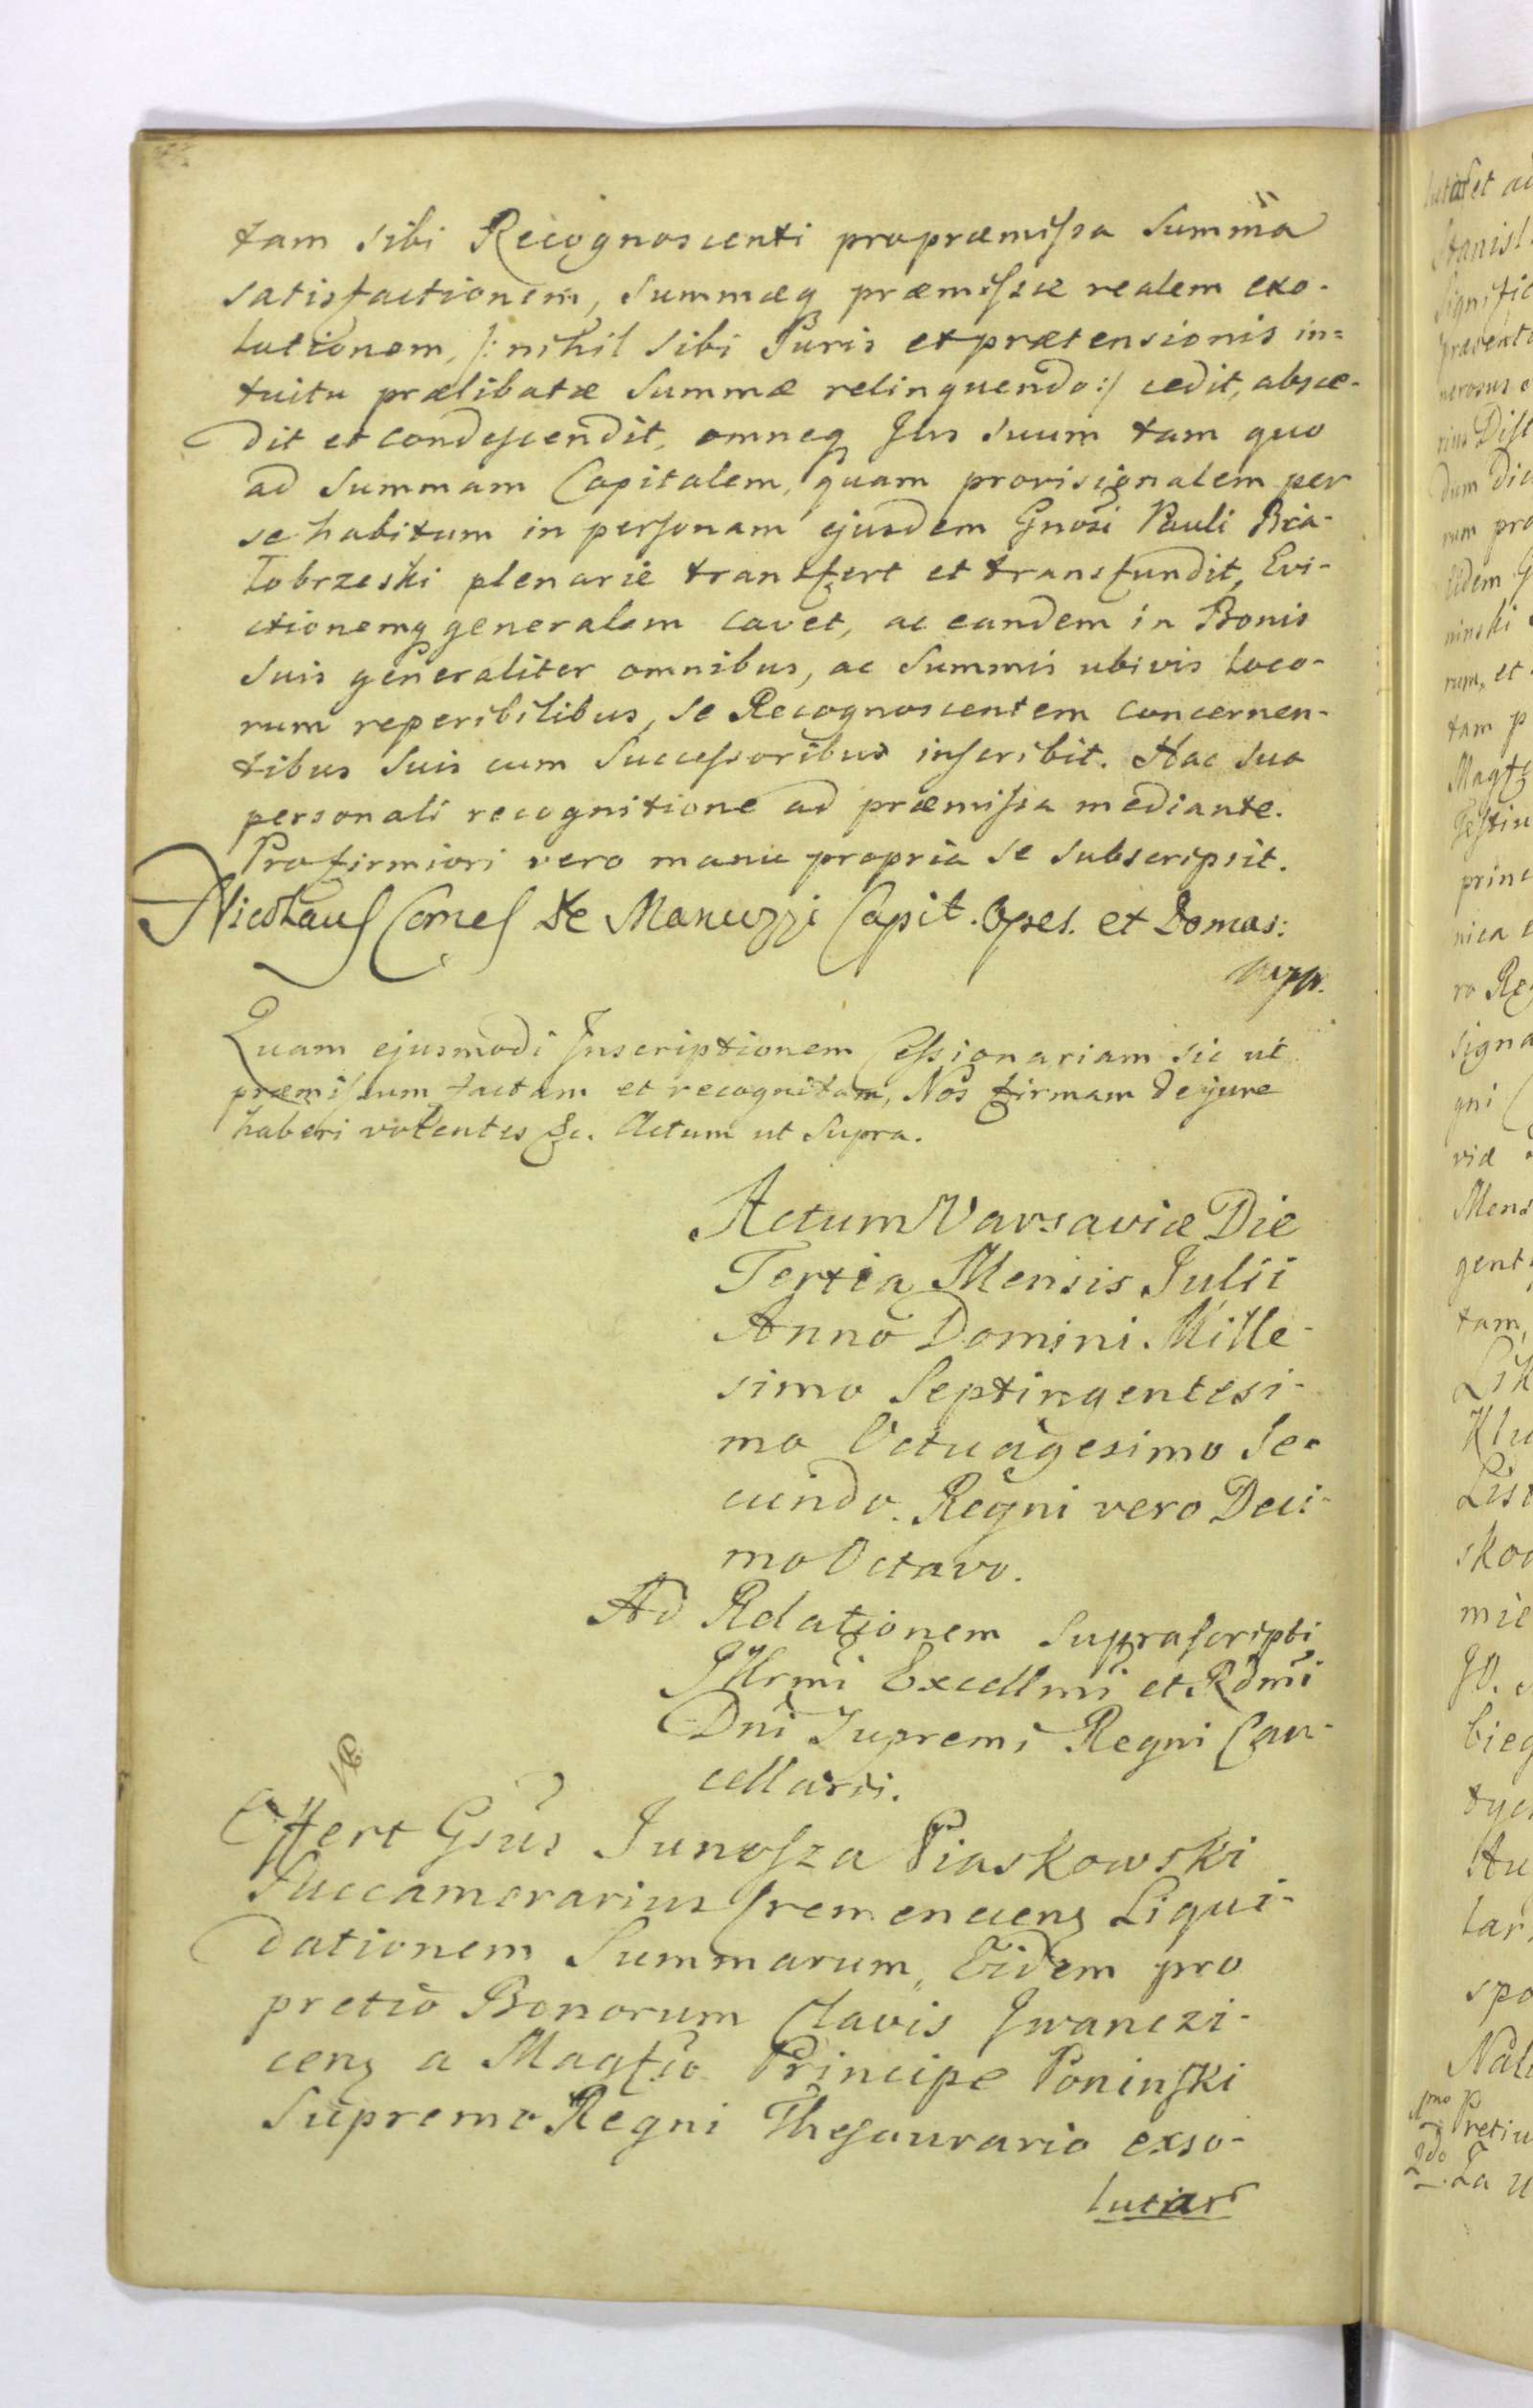 tam sibi Recognoscenti propræmissa Summa
satisfactionem, Summæq præmissæ realem exo-
lutionem, /: nihil sibi Juris et prætensionis in=
tuitu prælibatæ Summæ relinquendo :/ cedit, absce-
dit et condescendit, omneq Jus suum tam quo
ad Summam Capitalem, quam provisionalem per
se habitum in personam ejusdem Gnosi Pauli Bia-
łobrzeski plenarie transfert et transfundit, Evi-
ctionemq generalem cavet, ac eandem in Bonis
suis generaliter omnibus, ac Summis ubivis loco-
rum reperibilibus, se Recognoscentem concernen-
tibus suis cum Successoribus inscribit. Hac sua
personali recognitione ad præmissa mediante.
Pro firmiori vero manu propria se subscripsit.
Nicolaus Comes de Manuzzi Capit. Opes. et Domas:
mpp.
Quam ejusmodi Inscriptionem Cessionariam sic ut
præmissum factam et recognitam, Nos firmam de jure
haberi volentes &c. Actum ut Supra.
Actum Varsaviæ Die
Tertia Mensis Julii
Anno Domini Mille-
simo Septingentesi-
mo Octuagesimo Se-
cundo. Regni vero Deci-
mo Octavo.
Ad Relationem suprascripti
Illrmi Excellmi et Rdmi
Dni Supremi Regni Can-
cellarii.
Offert Gsus Junosza Piaskowski
Succamerarius Cremenecens Liqui-
dationem Summarum, Eidem pro
pretio Bonorum Clavis Iwanczi-
cens a Magfco Principe Poninski
Supremo Regni Thesaurario exso-
lutar